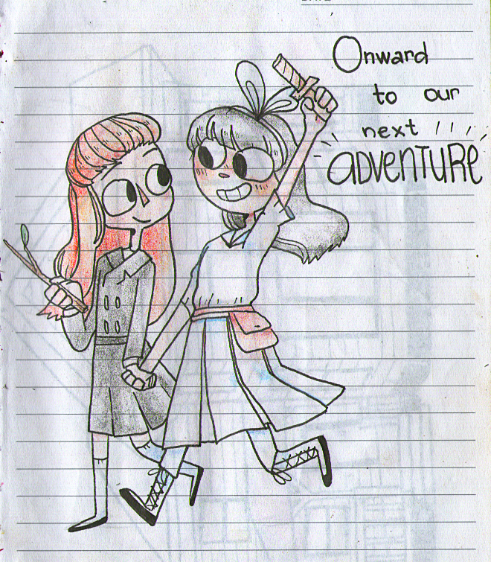 Onward
to our
next !!!
ADVENTURE